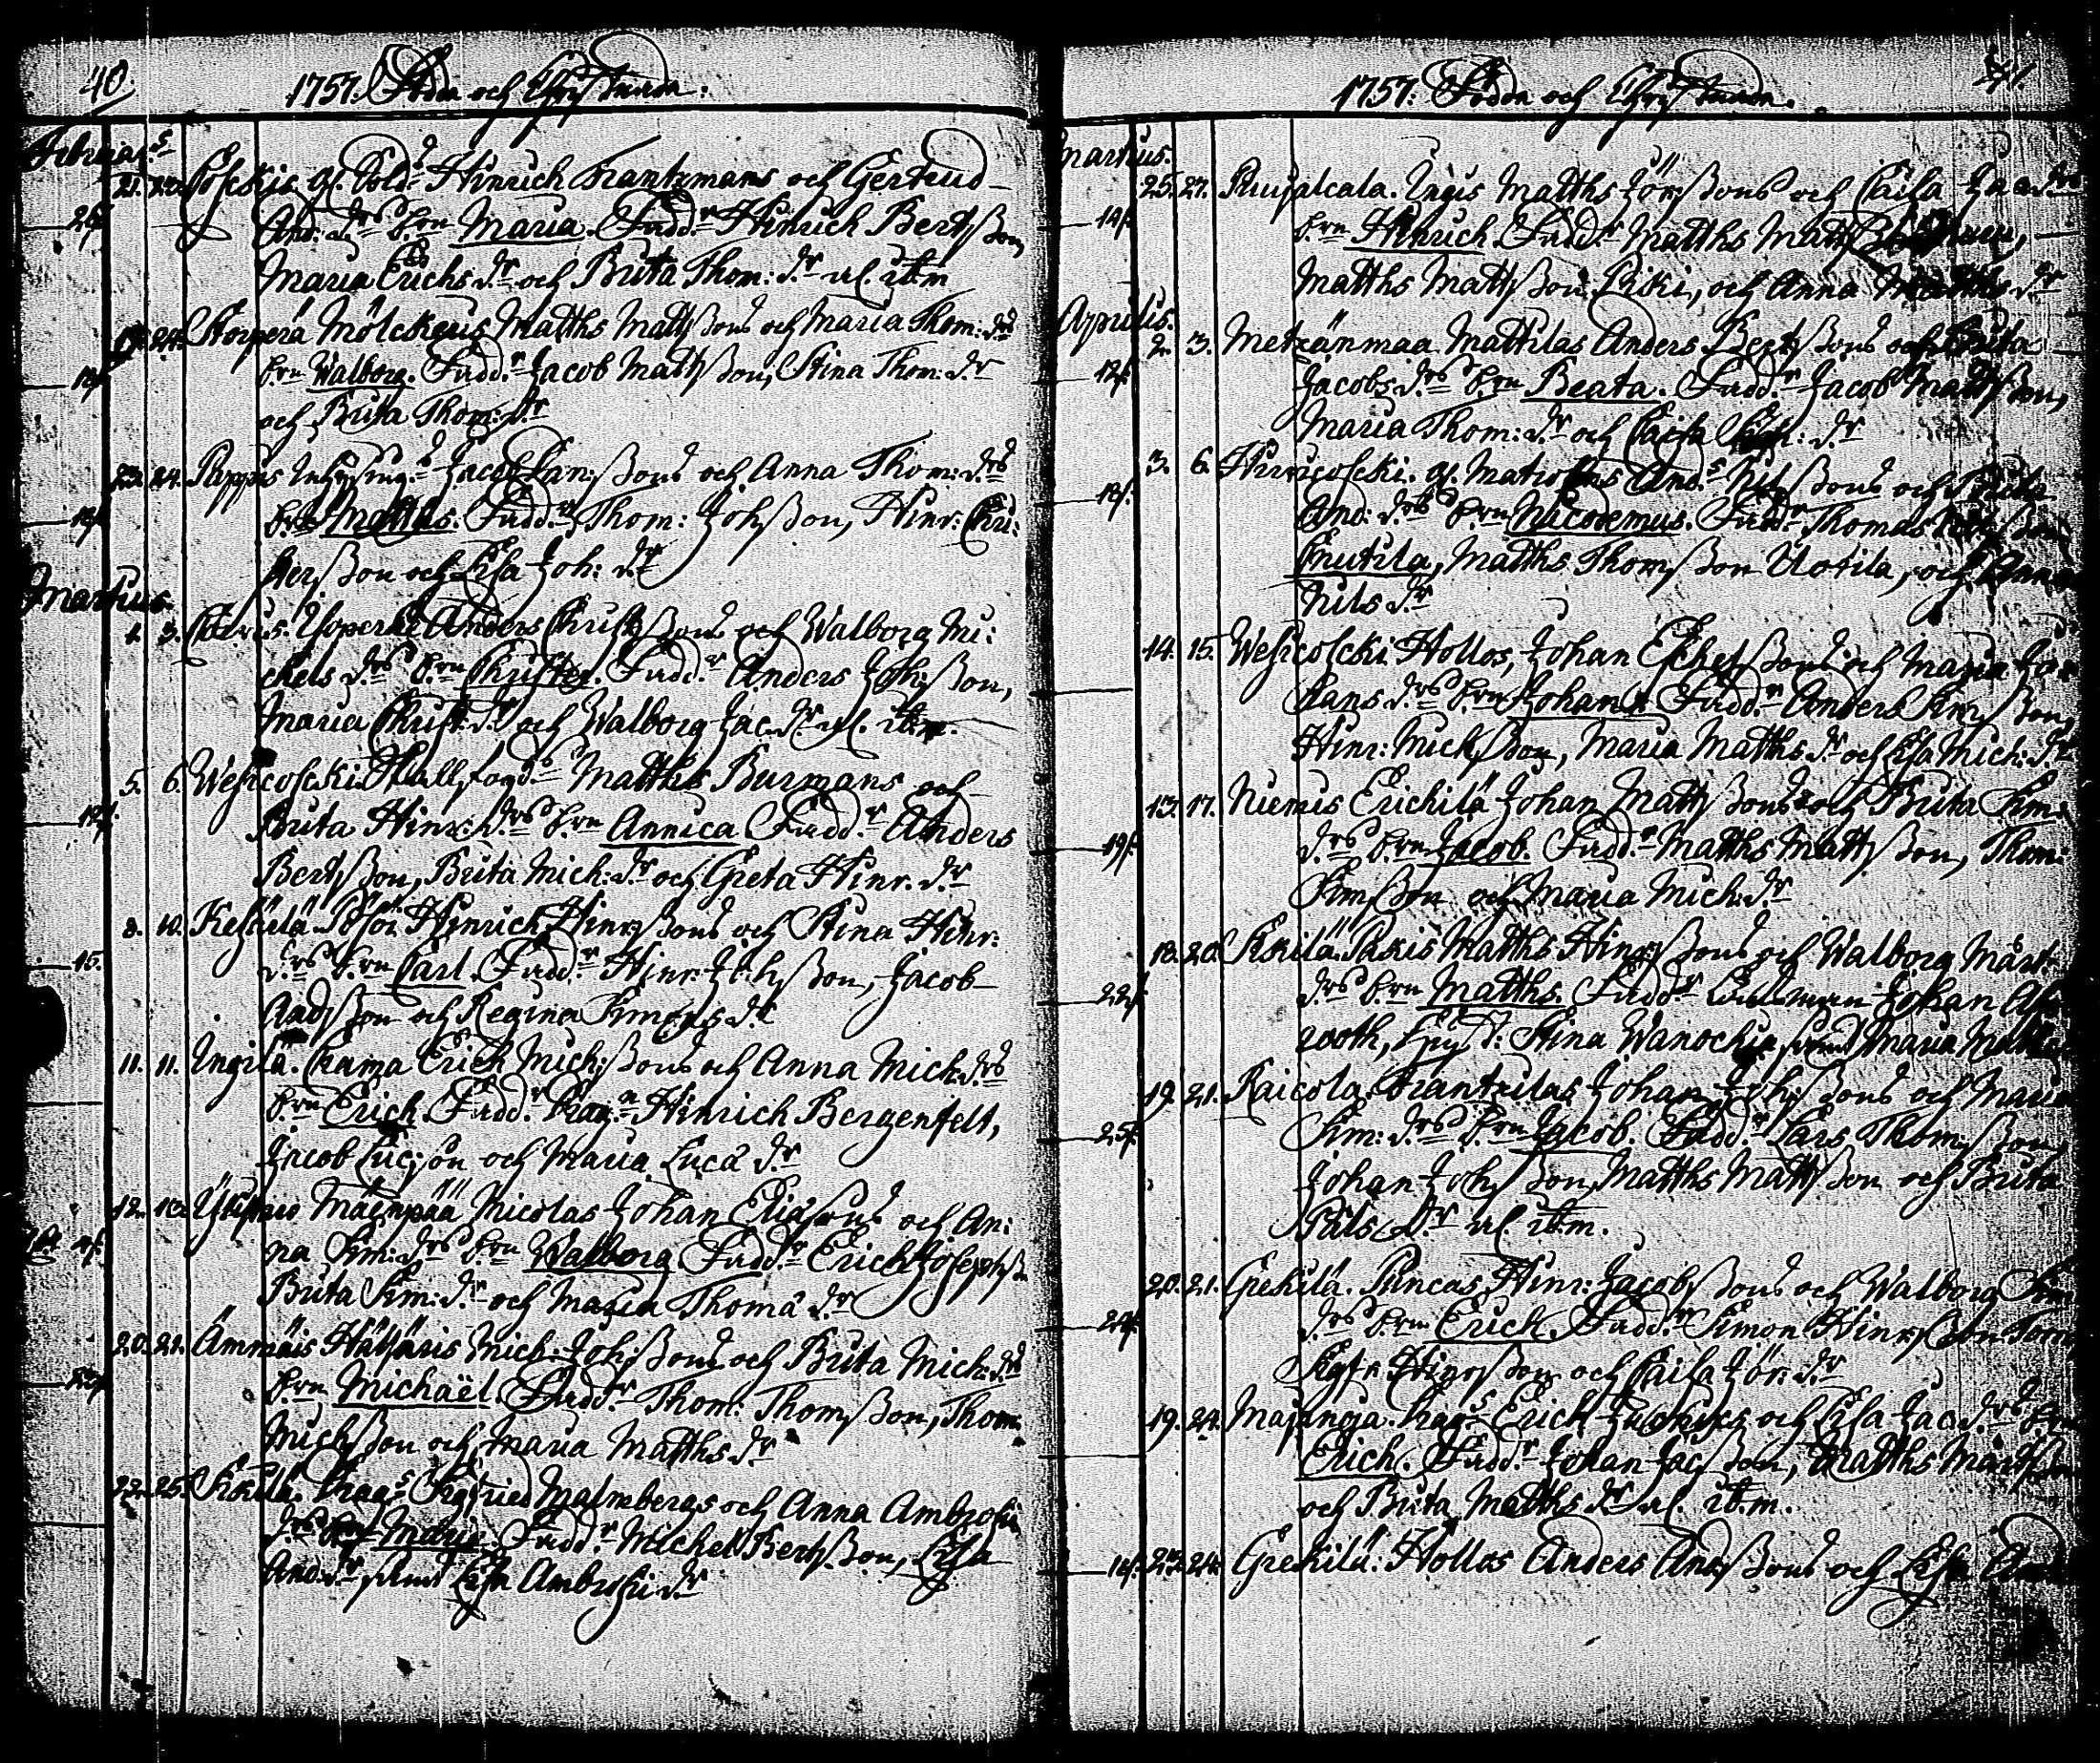 40.
1757. Födde och Chrystnade:
Februar:s
21. 22. gl. Sold:s Hinrich Krantzmans och Gertrud
26/. And: d:rs b:rn Maria. Fadd:r Hinrich Bertsson,
Maria Erichs d:r och Brita Thom: d:r ul. it:m
24. Storperä Mölckens Matths Mattssons och Maria Thom: d:rs
b:rn Walborg. Fadd:r Jacob Mattsson, Stina Thom: d:r
och Brita Thom: d:r
23. 24. Pappis Inhysing:s Jacob sons och Anna Thom: d:rs
b:rn Matths. Fadd:r Thom: Johsson, Hinr: Chri:
stersson och Lisa Joh: d:r
Martius.
1. 3. Anders Christssons och Walborg Mi:
chels d:rs b:rn Christer. Fadd:r Anders Johsson,
Maria Christ: d:r och Walborg Jac. d:r ul. it:m.
5. 6. Wesicoscki Matths Burmans och
Brita Hinr: d:rs b:rn Annica. Fadd:r Anders
Bertsson, Brita Mich: d:r och Greta Hinr. d:r
8. 10. Hinrich Hinrssons och Stina Hinr:
15. d:rs b:rn Carl. Fadd:r Hinr. Johsson, Jacob
och Regina Simons d:r
11. 11. Ingilä. Crama Erich Michssons och Anna Mich d:rs
b:rn Erich. Fadd:r Hinrich Bergenfelt,
Jacob Lucsson och Maria Lucä d:r
12. Mäenpää Nicolas Johan Eliæsons och An:
na Sim: d:rs b:rn Walborg. Fadd:r Erich Josephss.
Brita Sim: d:r och Maria Thomä d:r
20. 21. Ammäis Hättäris Mich: Johssons och Brita Mich: d:rs
b:rn Michaël. Fadd:r Thom: Thomsson, Thom:
Michsson och Maria Matths d:r
22. 25. Skilä. Drag:s Sigfried Malmbergs och Anna Ambrosii
d:rs b:rn Maria. Fadd:r Michel Bertsson, Lisa
And: d:r samt Lisa Ambrosii d:r
41.
1757: Födde och Chrystnade.
Martius.
25. 27. Matths Jörssons och Caisa Jac d:rs
b:rn Hinrich. Fadd:r Matths
Matths Mattsson Piski, och Anna Matths d:r
Aprilis.
2. 3. Metzänmaa Mattilas Anders Bertssons och Brita
12/. Jacobs d:rs b:rn Beata. Fadd:r Jacob Mattsson,
Maria Thom: d:r och Caisa d:r
3. 6. gl. And:s Nilssons och Brita
18/. And: d:rs b:rn Nicodemus. Fadd:r Thomas
Knutila, Matths Thomsson Uotila, och Anna
Nils d:r
14. 15. Wesicoscki Hollos, Johan Eskelssons och Maria
d:rs b:rn Johan. Fadd:r Anders Simsson,
Hinr: Michsson, Maria Matths d:r och Lisa Mich: d:r
13. 17. Niemis Erichilä Johan Mattssons och Brita Sim:
19/. d:rs b:rn Jacob. Fadd:r Matths Mattsson, Thom:
Simsson och Maria Mich: d:r
18. 20. Skilä. Pakis Matths Hinrssons och Walborg Mårt:
22/. d:rs b:rn Matths. Fadd:r Johan
Stina Wanochia samt Maria
19. 21. Raicola. Frantzilas Johan Johssons och Maria
25/. Sim: d:rs b:rn Jacob. Fadd:r Lars Thomsson,
Johan Johsson, Matths Mattsson och Brita
Påls d:r ul. it:m.
20. 21. Grekilä. Puncas Hinr: Jacobssons och Walborg Sim
d:rs b:rn Erich. Fadd:r Simon Hinrsson
Hinrsson och Caisa Jör: d:r
19. 24. Majanoja. Drag:s Erich och Lisa Jac d:rs b:rn
Erich. Fadd:r Johan Jacsson, Matths Mårtsson
och Brita Matths d:r ul. it:m.
23. 24. Grekilä: Hollos Anders Andssons och Lisa